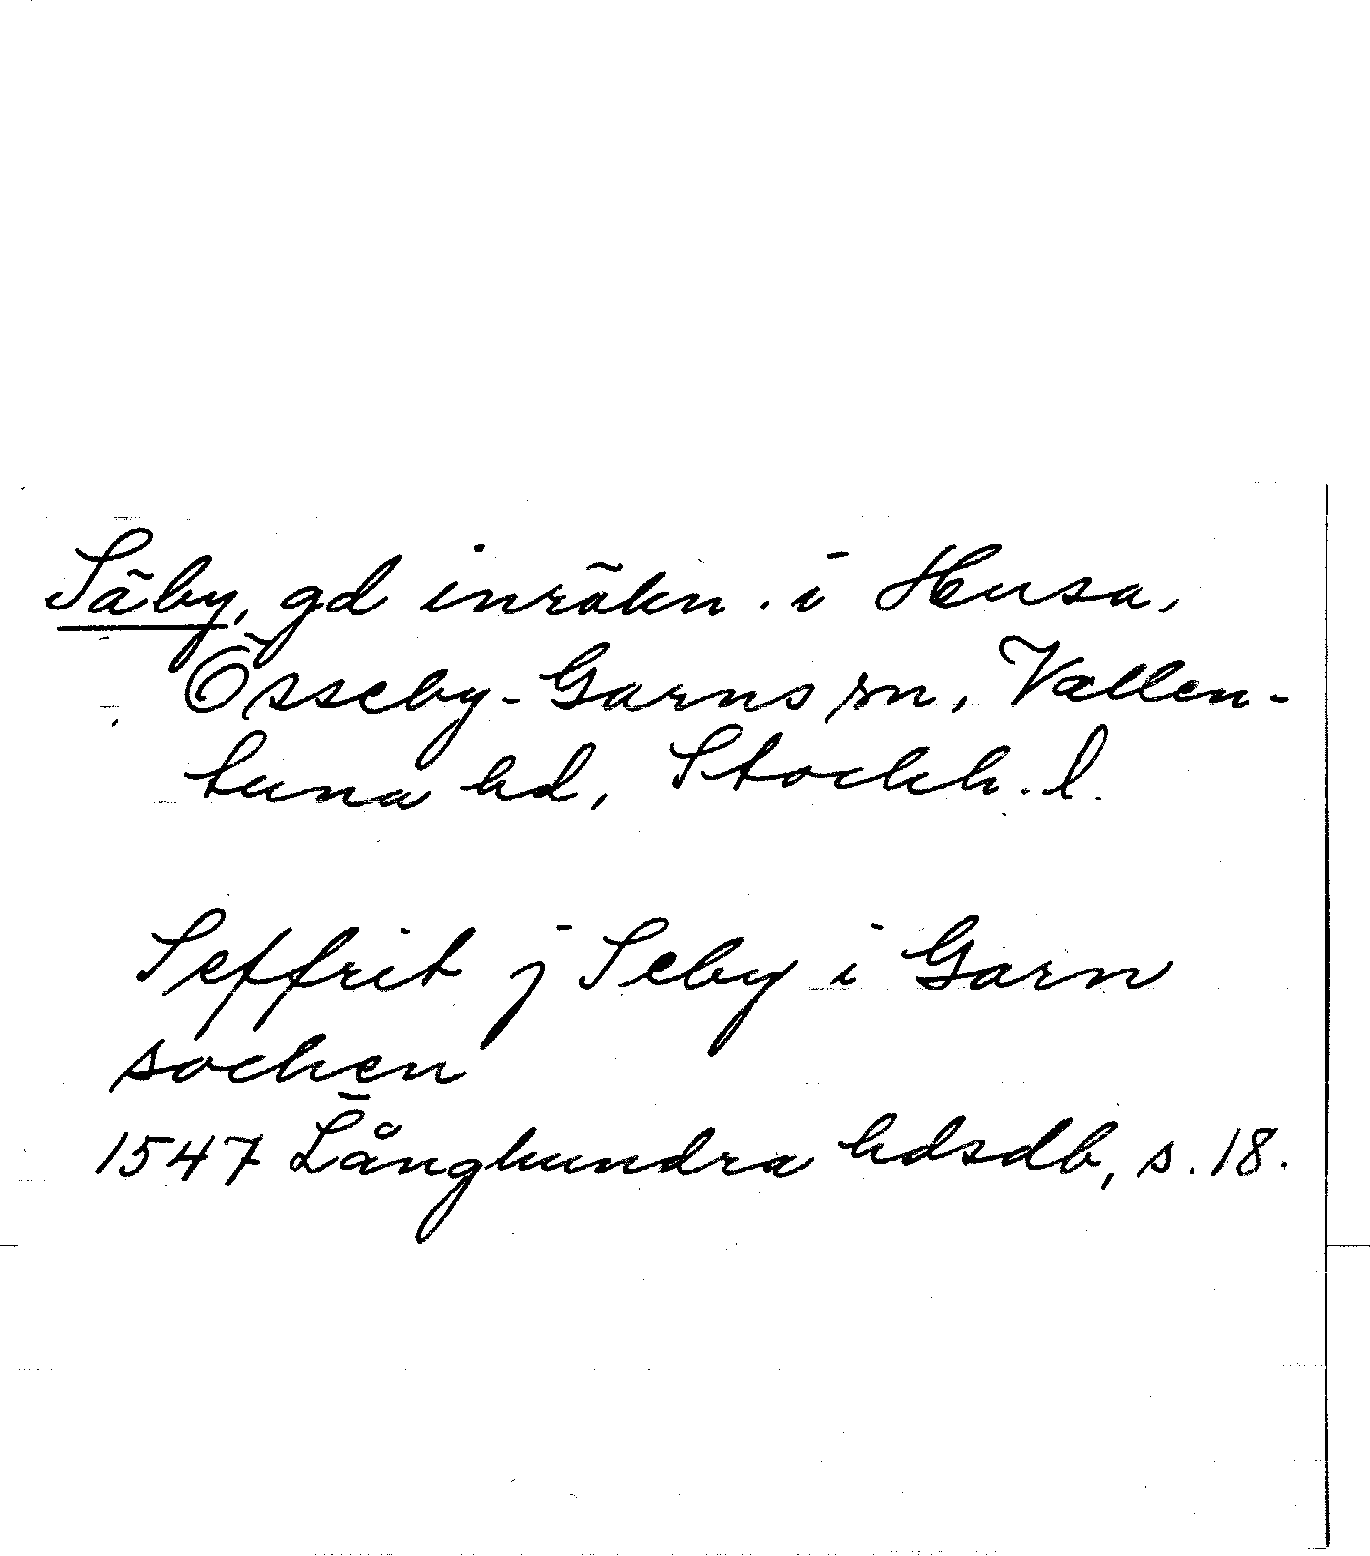 Säby, gd inräkn. i Husa,
Össeby-Garns sn, Vallen-
tuna hd, Stockh. l.
Seffrit j Seby i Garn
sochen
1547 Långhundra hdsdb, s. 18.